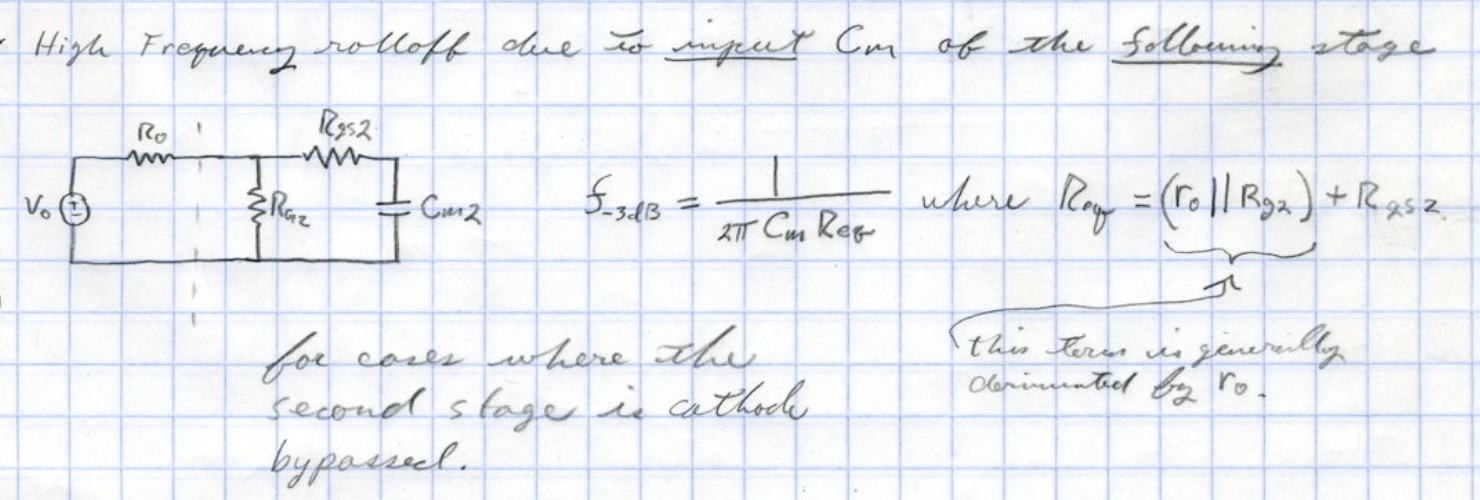 High Frequency rolloff due to input Cm of the following stage
Ro
Rgs2
Vo
RG2
Cm2
f-3dB = 1 / 2π Cm Req where Req = (ro || Rg2) + Rgs2
this term is generally
dominated by ro.
for cases where the
second stage is cathode
bypassed.